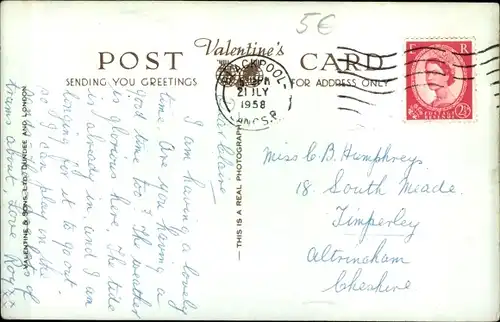 5€
POST Valentine's CARD
SENDING YOU GREETINGS
FOR ADDRESS ONLY
POOL
21 JLY
1958
LANCS.
R
2½
POSTAGE REVENUE
— THIS IS A REAL PHOTOGRAPH
VALENTINE & SONS, LTD., DUNDEE AND LONDON
Dear
I am having a lovely
time. Are you having a
good time too? The weather
is glorious here. The tide
is already in, and I am
longing for it to go out
so I can play in the
sands. There are lots of
trams about. Love Roy xx
Miss C. B. Humphreys
18 South Meade
Timperley
Altrincham
Cheshire